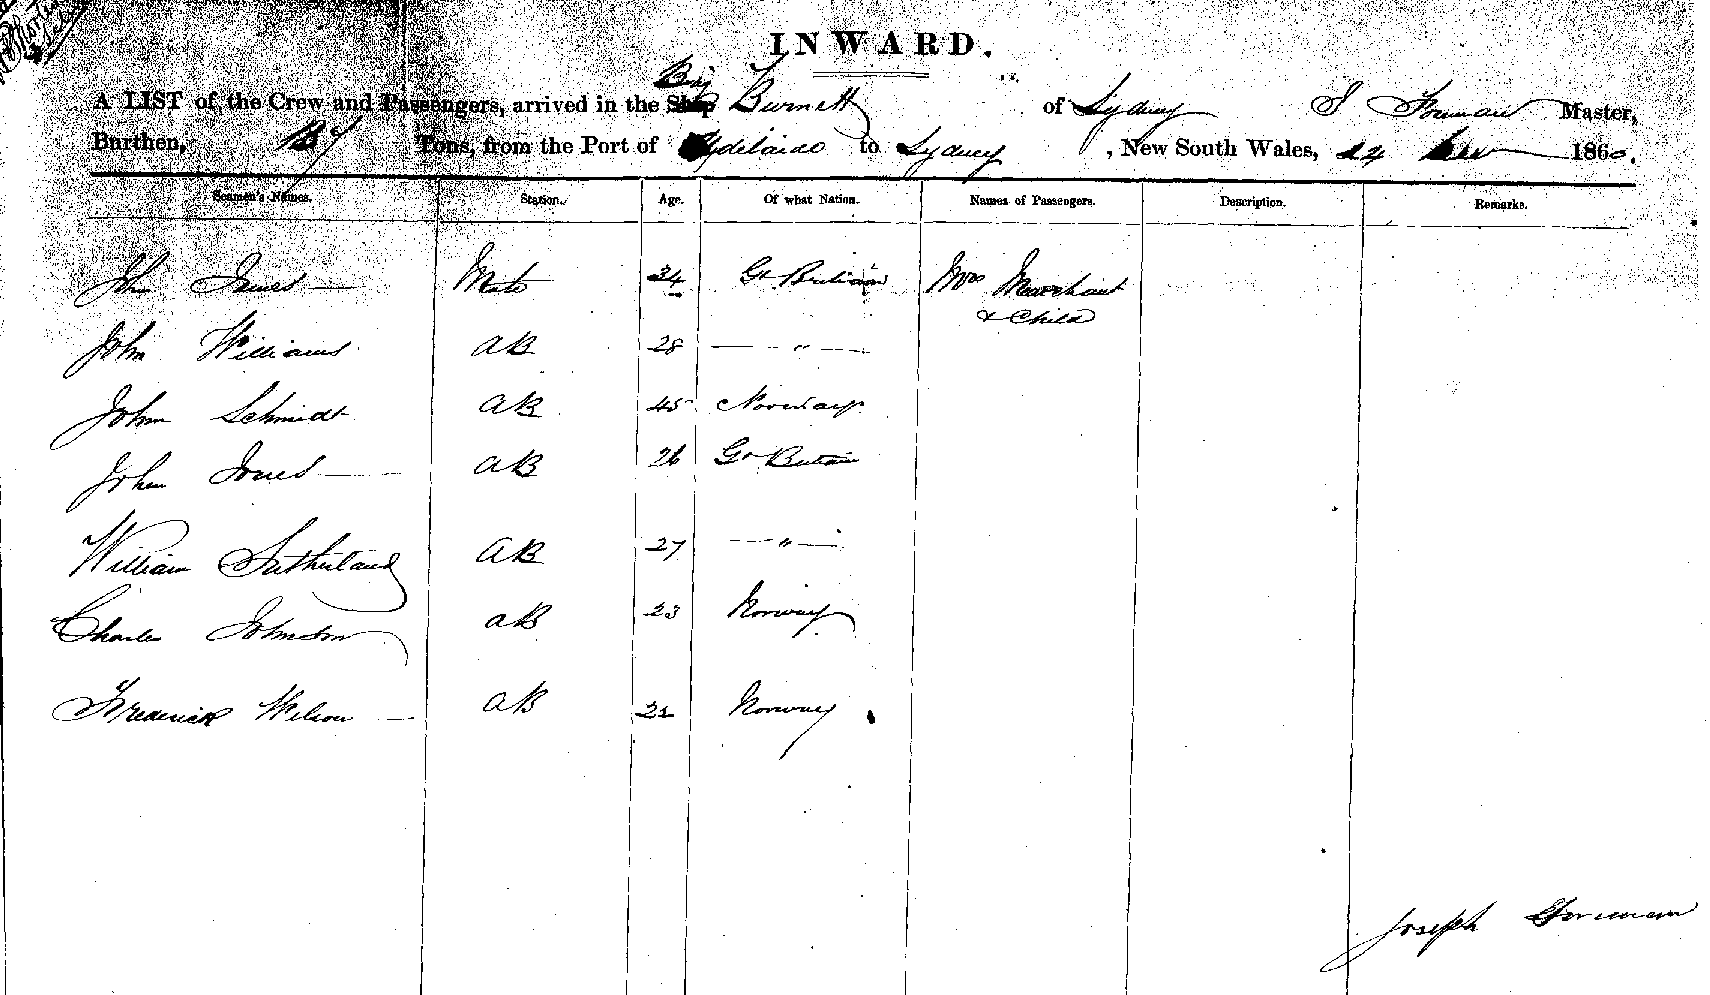 INWARD.
A LIST of the Crew and Passengers, arrived in the Ship Brig Burnett of Sydney J Forman Master,
Burthen, Tons, from the Port of Adelaide to Sydney , New South Wales, 24 1860.
Seamen's Names. Station. Age. Of what Nation. Names of Passengers. Description. Remarks.
John Jones — Mate 34 Gt Britain Mrs Merchant
& Child
John Williams AB 28 — " —
John Schmidt AB 45 Norway
John Jones — AB 26 Gt Britain
William Sutherland AB 27 — " —
Charles Johnston AB 23 Norway
Frederick Wilson — AB 21 Norway
Joseph Forman